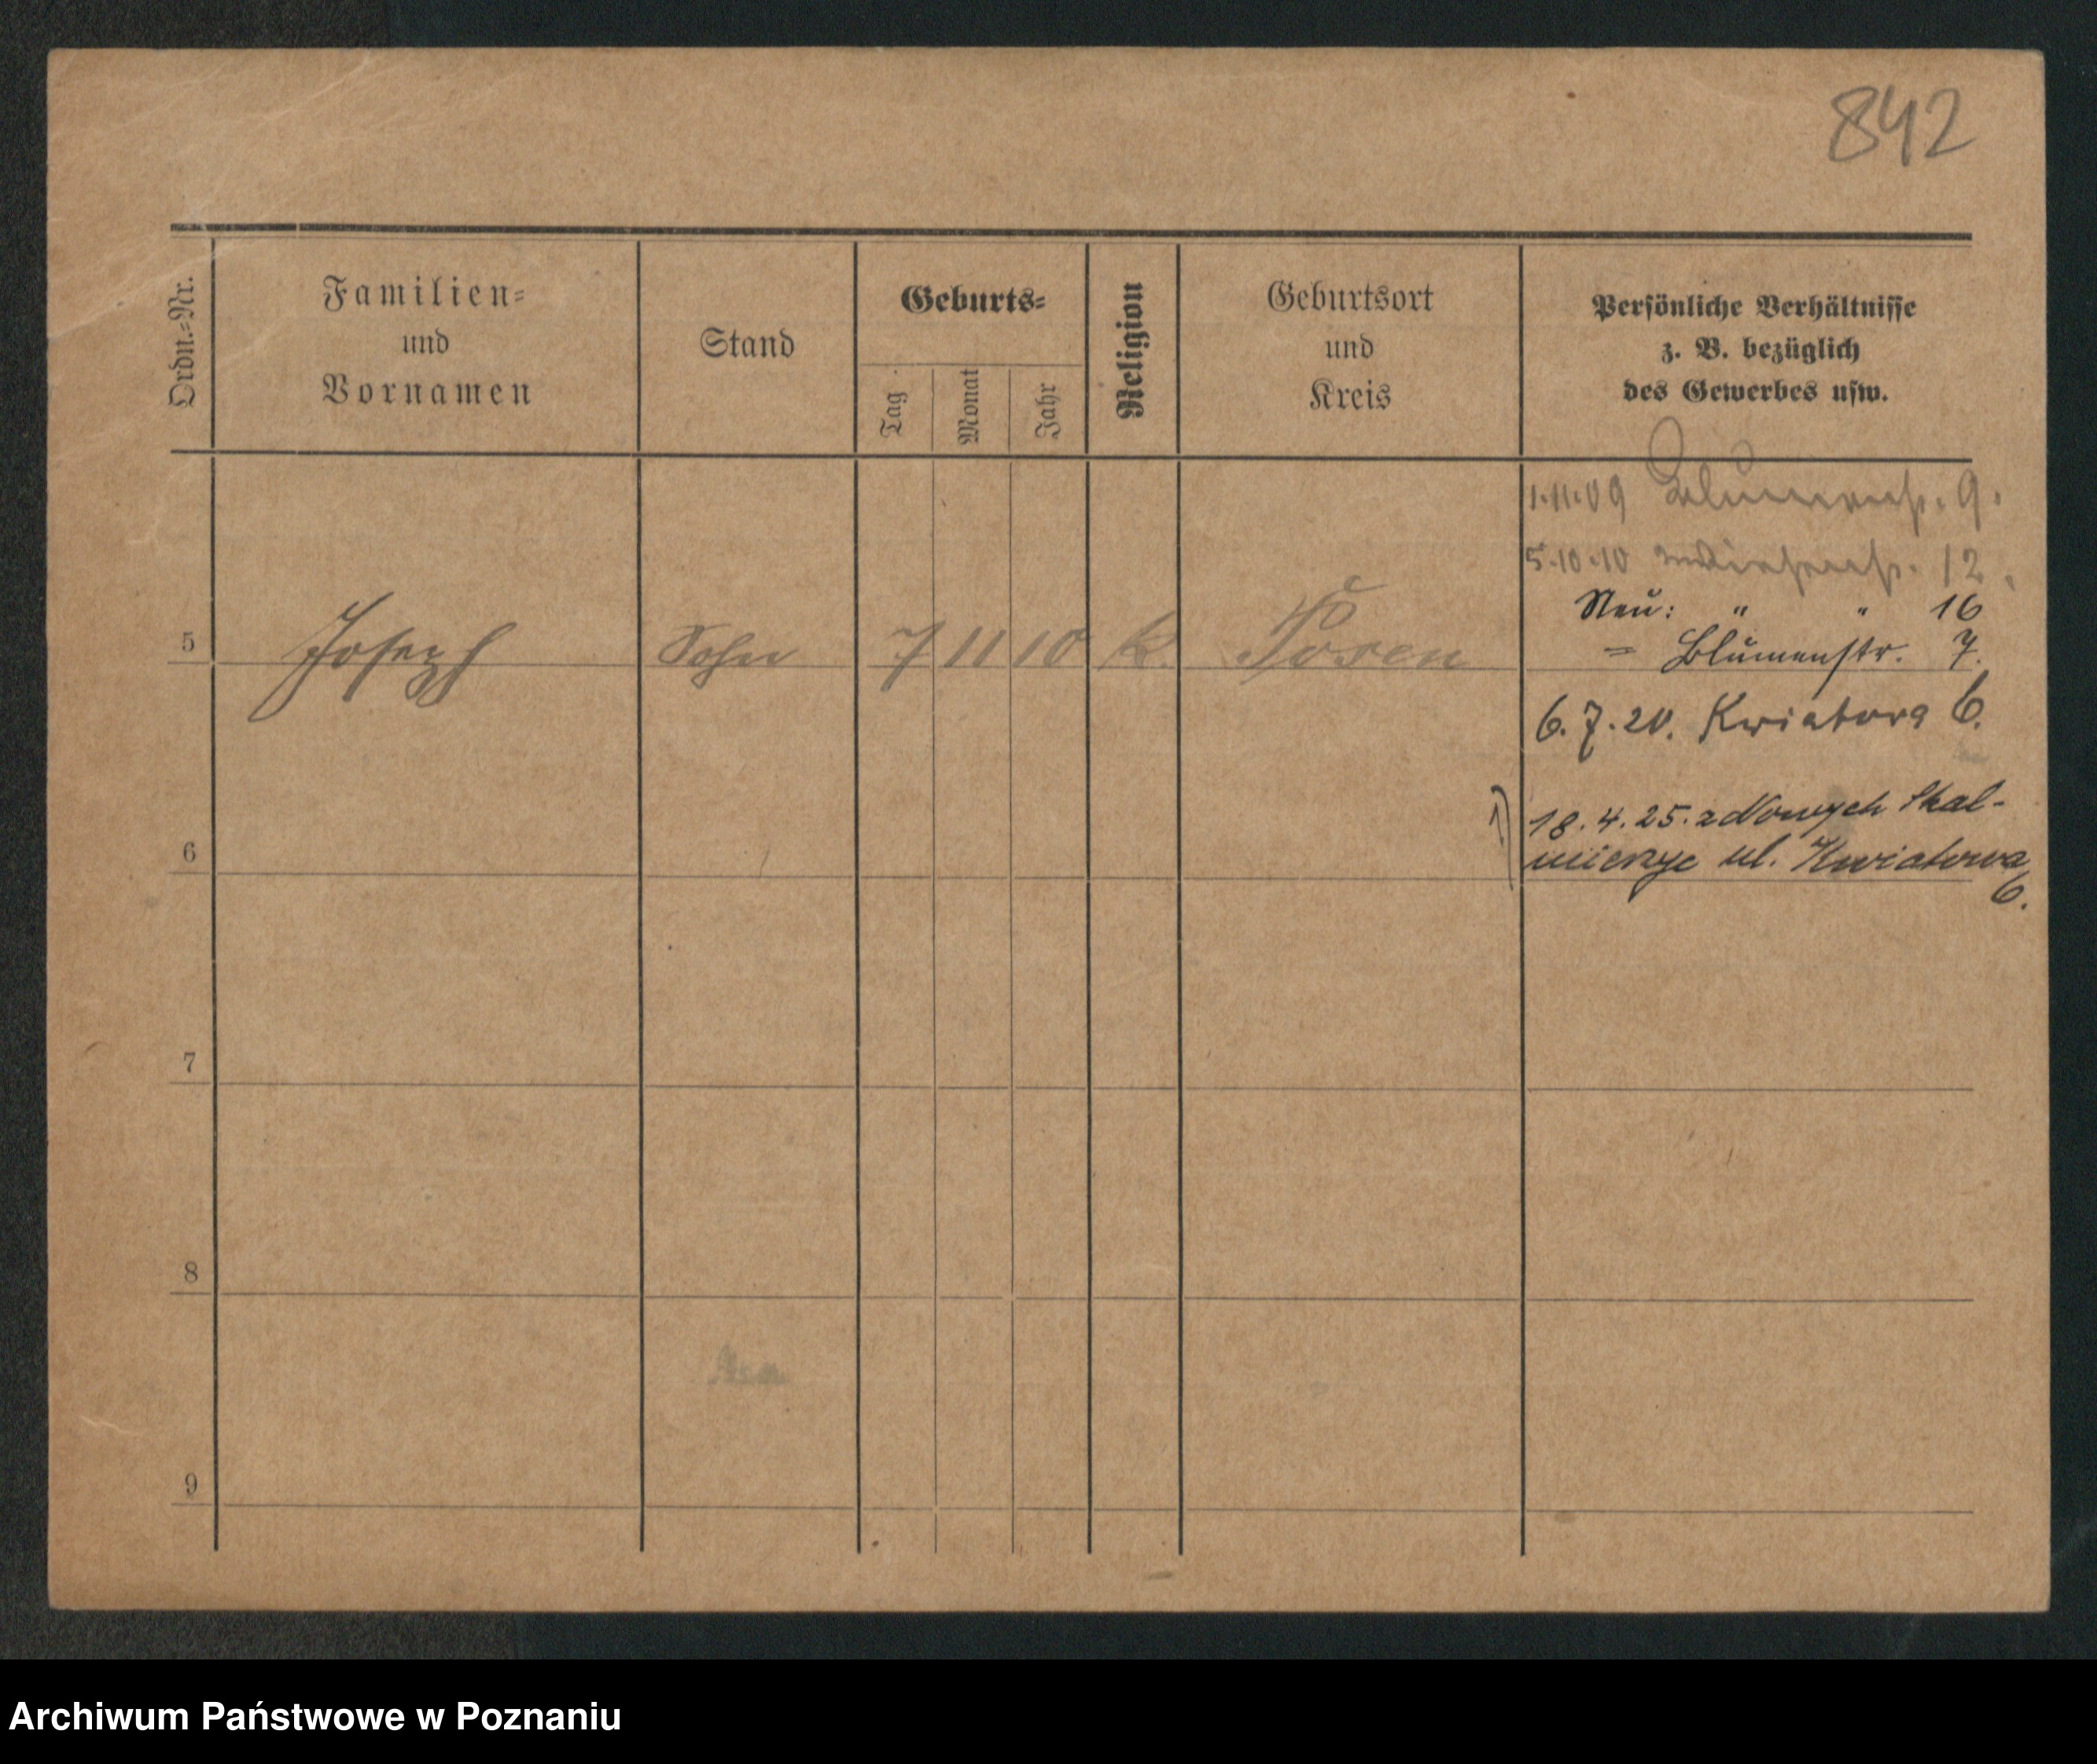 842
Ordn.-Nr.
Familien-
und
Vornamen
Stand
Geburts-
Tag
Monat
Jahr
Religion
Geburtsort
und
Kreis
Persönliche Verhältnisse
z. B. bezüglich
des Gewerbes usw.
1.11.09 Blumenstr. 9.
5.10.10 12.
Neu: " " 16
5 Joseph Sohn 7 11 10 k. Posen
= Blumenstr. 7.
6.7.20. Kwiatowa 6.
1) 18.4.25. z Nowych Skal-
6 mierzyc ul. Kwiatowa
6.
7
8
9
Archiwum Państwowe w Poznaniu